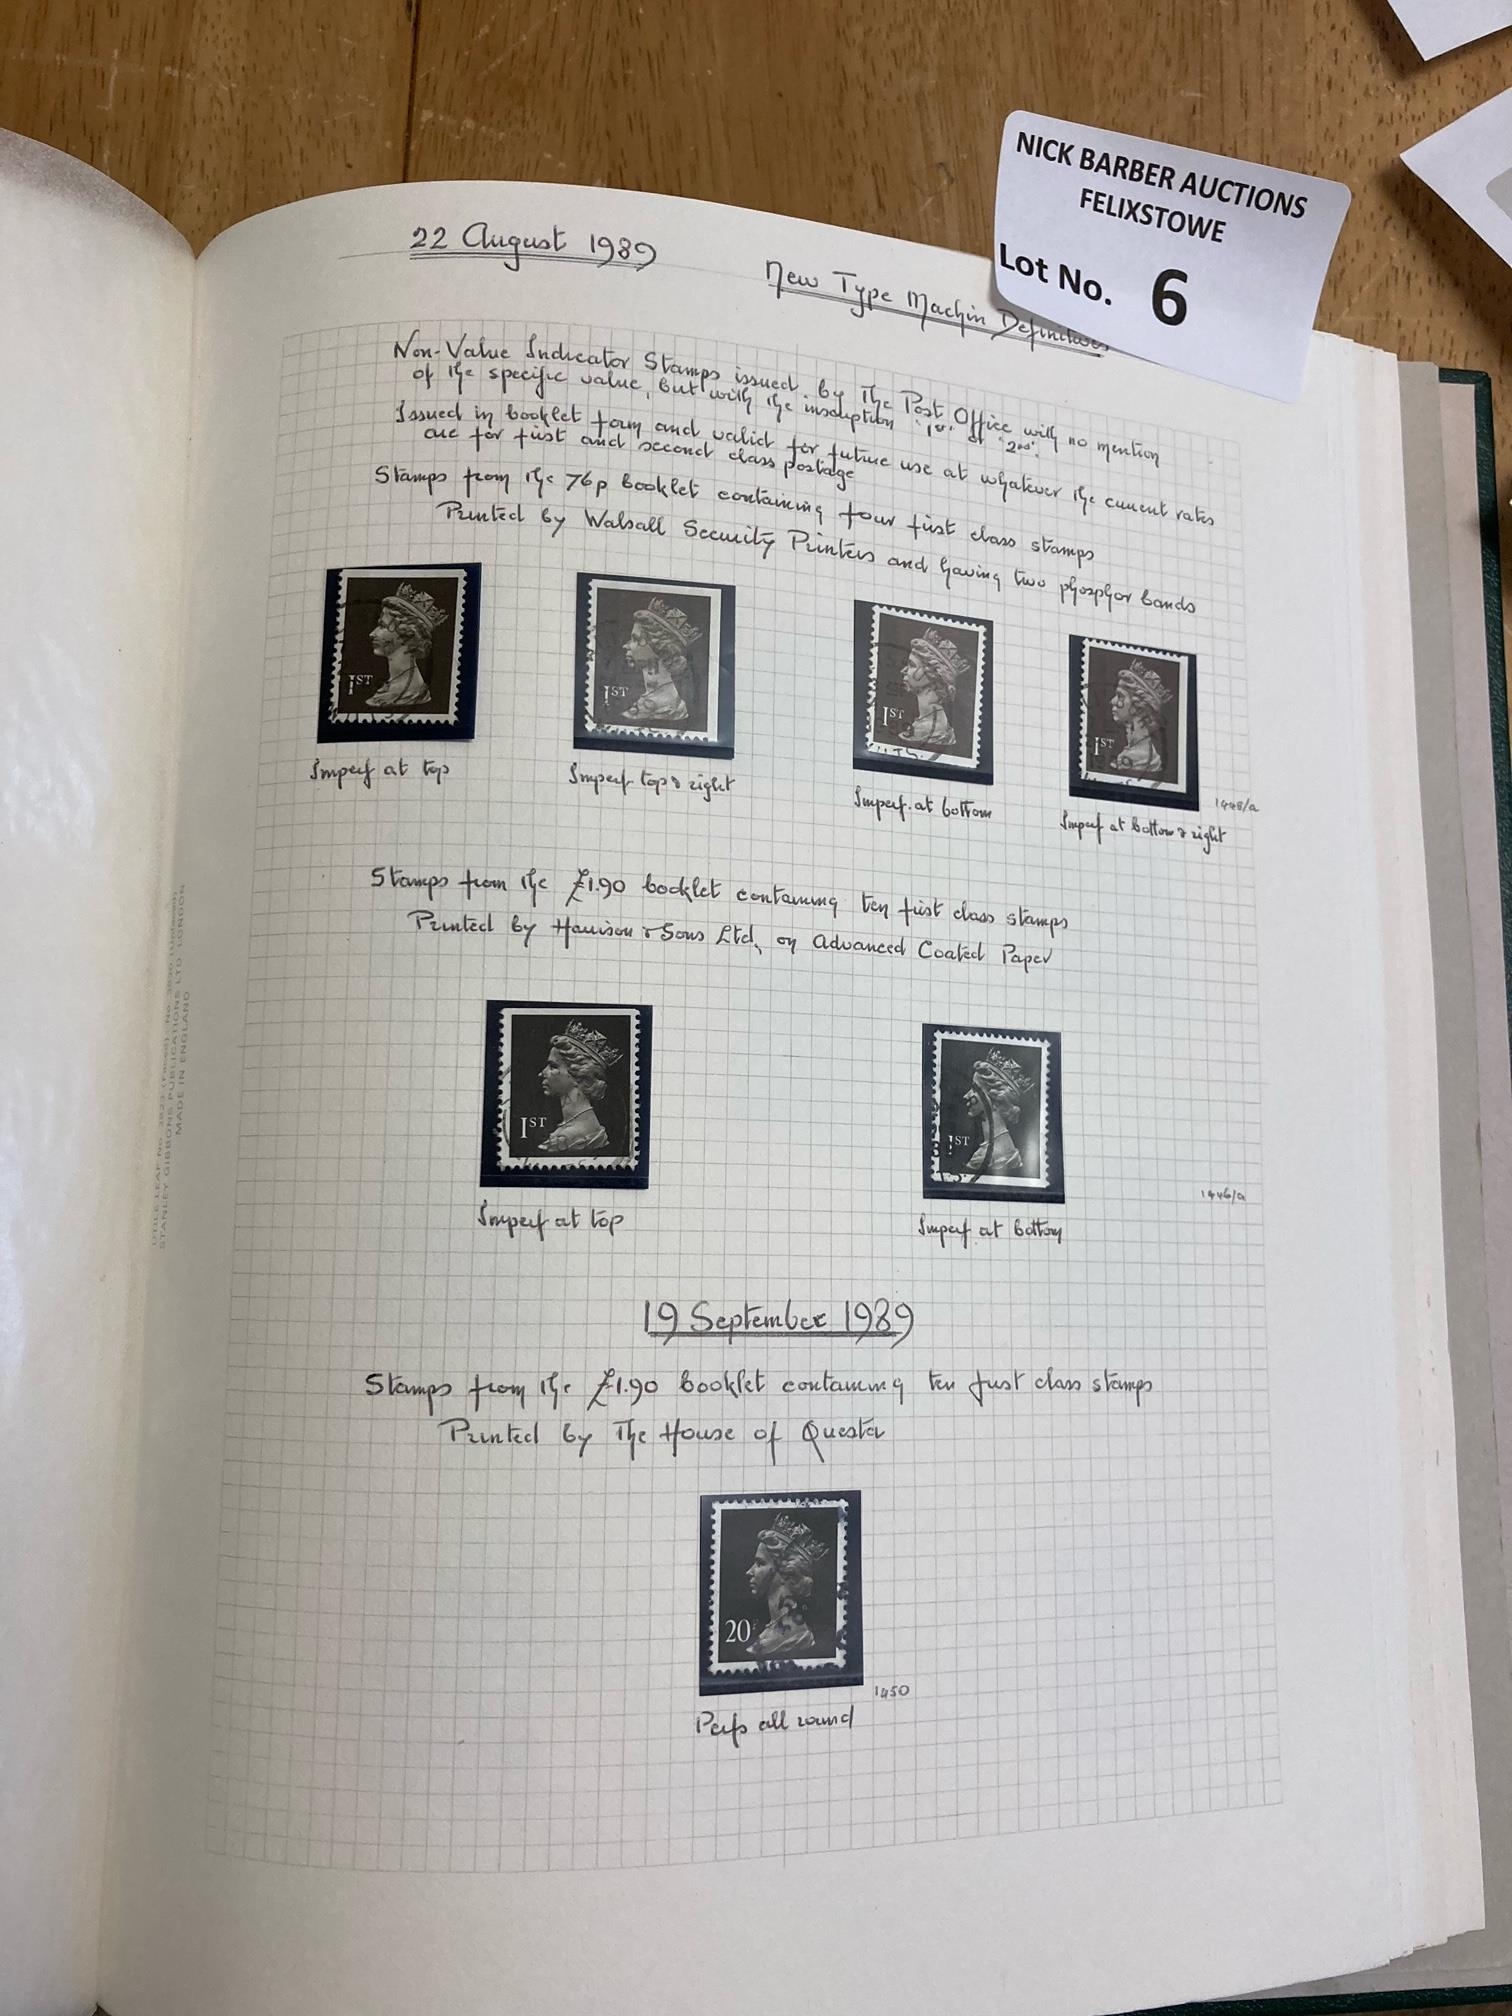 NICK BARBER AUCTIONS
FELIXSTOWE
Lot No. 6
22 August 1989
New Type Machin Definitives
Non-Value Indicator Stamps issued by The Post Office with no mention
of the specific value, but with the inscription "1st" or "2nd".
Issued in booklet form and valid for future use at whatever the current rates
are for first and second class postage
Stamps from the 76p booklet containing four first class stamps
Printed by Walsall Security Printers and having two phosphor bands
1ST
1ST
1ST
1ST
Imperf at top
Imperf top & right
Imperf. at bottom
Imperf at bottom & right
1448/a
Stamps from the £1.90 booklet containing ten first class stamps
Printed by Harrison & Sons Ltd, on Advanced Coated Paper
1ST
1ST
Imperf at top
Imperf at bottom
1446/a
19 September 1989
Stamps from the £1.90 booklet containing ten first class stamps
Printed by The House of Questa
20P
1450
Perfs all round
STANLEY GIBBONS PUBLICATIONS LTD LONDON
MADE IN ENGLAND